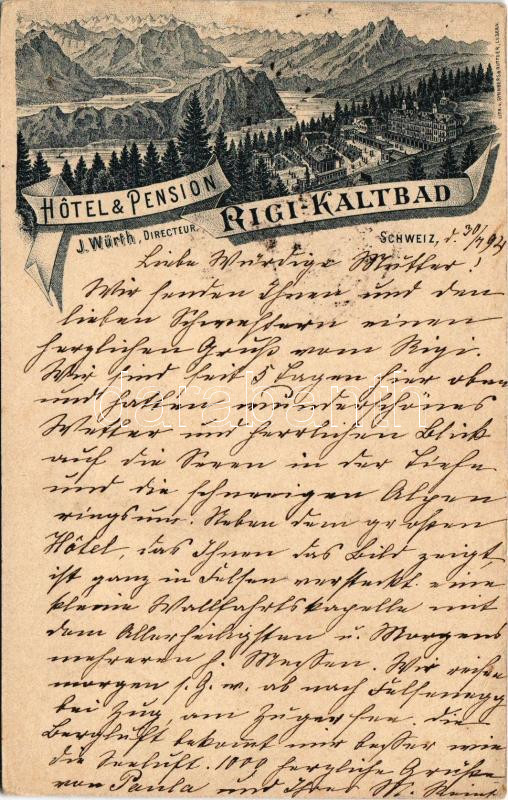 HÔTEL & PENSION
RIGI-KALTBAD
J. Würth, DIRECTEUR.
SCHWEIZ, d. 30/7 92
Liebe Würdige Mutter!
Wir senden Ihnen und den
lieben Schwestern einen
herzlichen Gruß vom Rigi.
Wir sind seit 5 Tagen hier oben
und hatten wunderschönes
Wetter und herrlichen Blick
auf die Seeen in der Tiefe
und die schneeigen Alpen
ringsum. Neben dem großen
Hôtel, das Ihnen das Bild zeigt,
ist ganz in Felsen versteckt eine
kleine Wallfahrtskapelle mit
dem Allerheiligsten u. Morgens
mehreren h. Messen. Wir reisen
morgen s. G. w. ab nach Felsenegg
bei Zug, am Zugersee. Die
Bergluft bekomt mir besser wie
die Seeluft. 1000 herzliche Grüße
von Paula und Ihrer
darabanth